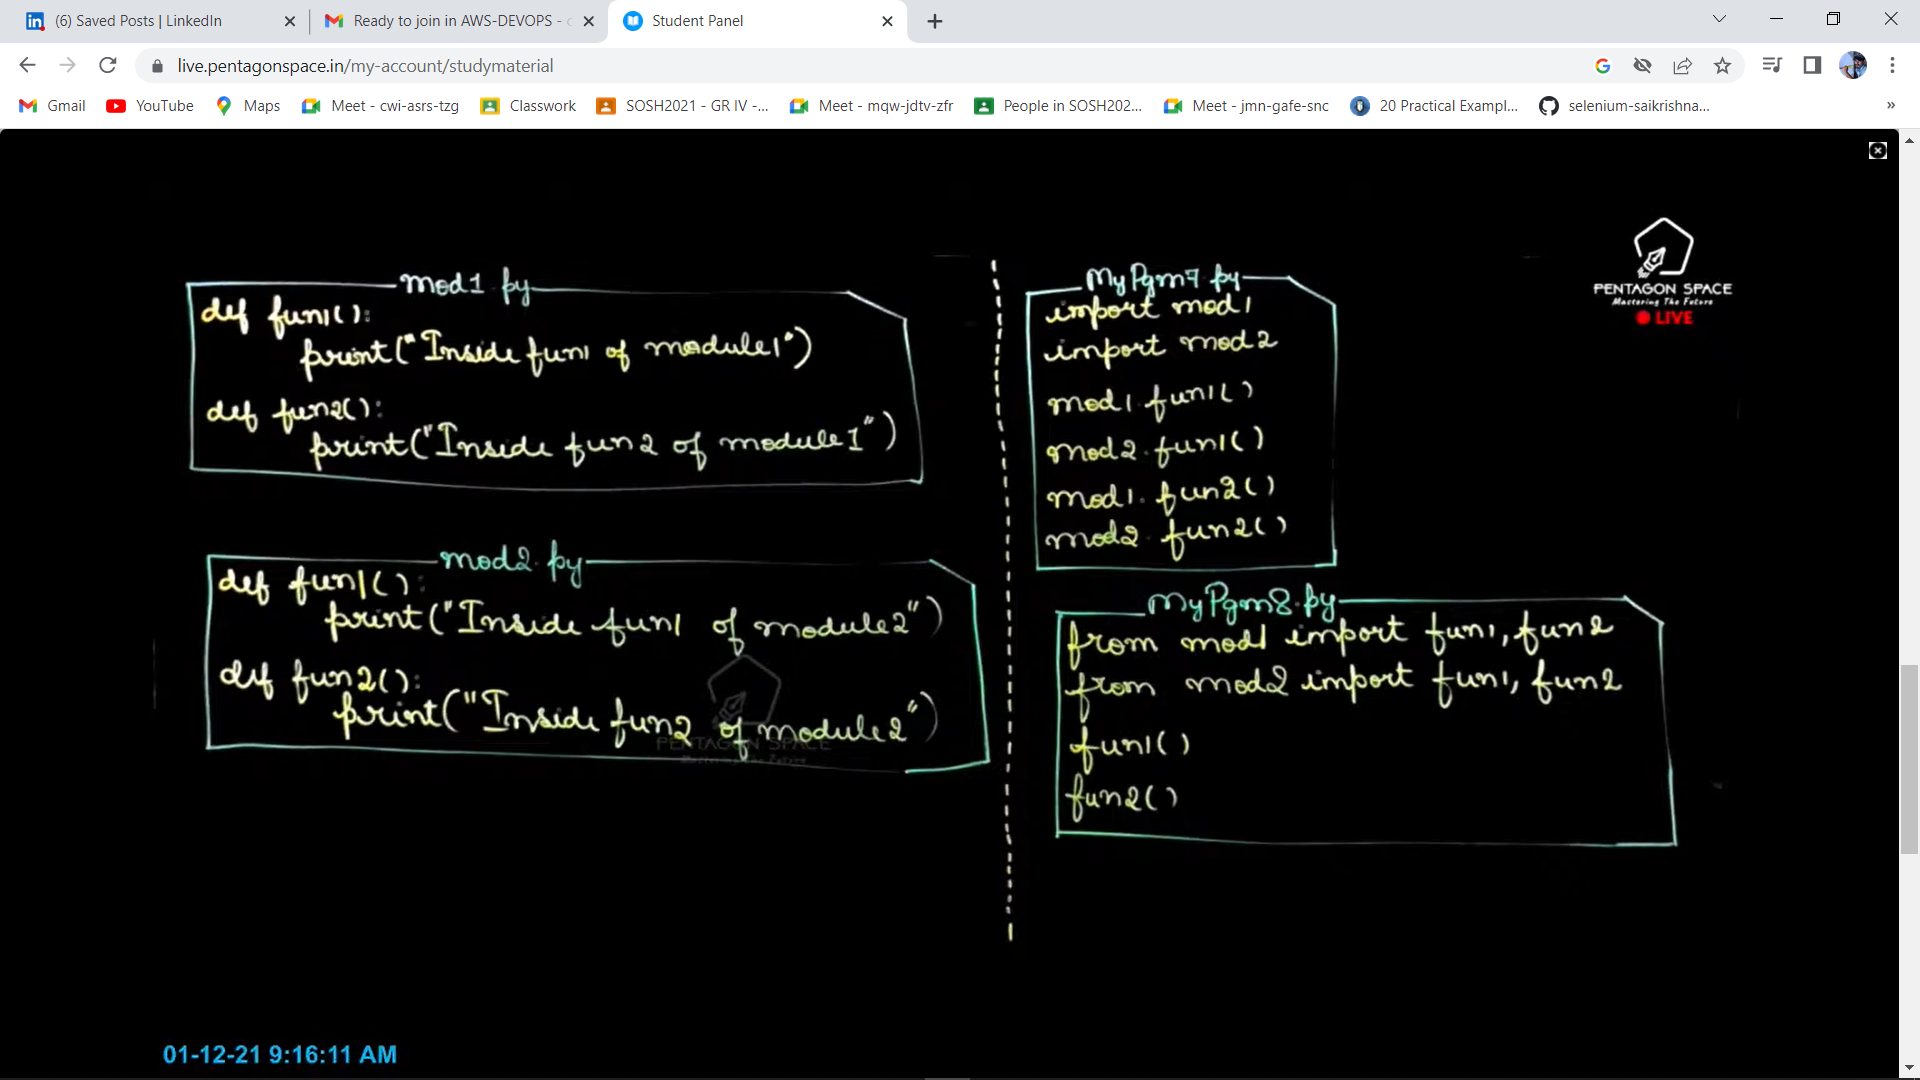 (6) Saved Posts | LinkedIn
Ready to join in AWS-DEVOPS -
Student Panel
live.pentagonspace.in/my-account/studymaterial
Gmail
YouTube
Maps
Meet - cwi-asrs-tzg
Classwork
SOSH2021 - GR IV -...
Meet - mqw-jdtv-zfr
People in SOSH202...
Meet - jmn-gafe-snc
20 Practical Exampl...
selenium-saikrishna...
PENTAGON SPACE
Mastering The Future
LIVE
mod1.py
def fun1():
print("Inside fun1 of module1")
def fun2():
print("Inside fun2 of module1")
mod2.py
def fun1():
print("Inside fun1 of module2")
def fun2():
print("Inside fun2 of module2")
PENTAGON SPACE
Mastering The Future
MyPgm7.py
import mod1
import mod2
mod1.fun1()
mod2.fun1()
mod1.fun2()
mod2.fun2()
MyPgm8.py
from mod1 import fun1, fun2
from mod2 import fun1, fun2
fun1()
fun2()
01-12-21 9:16:11 AM